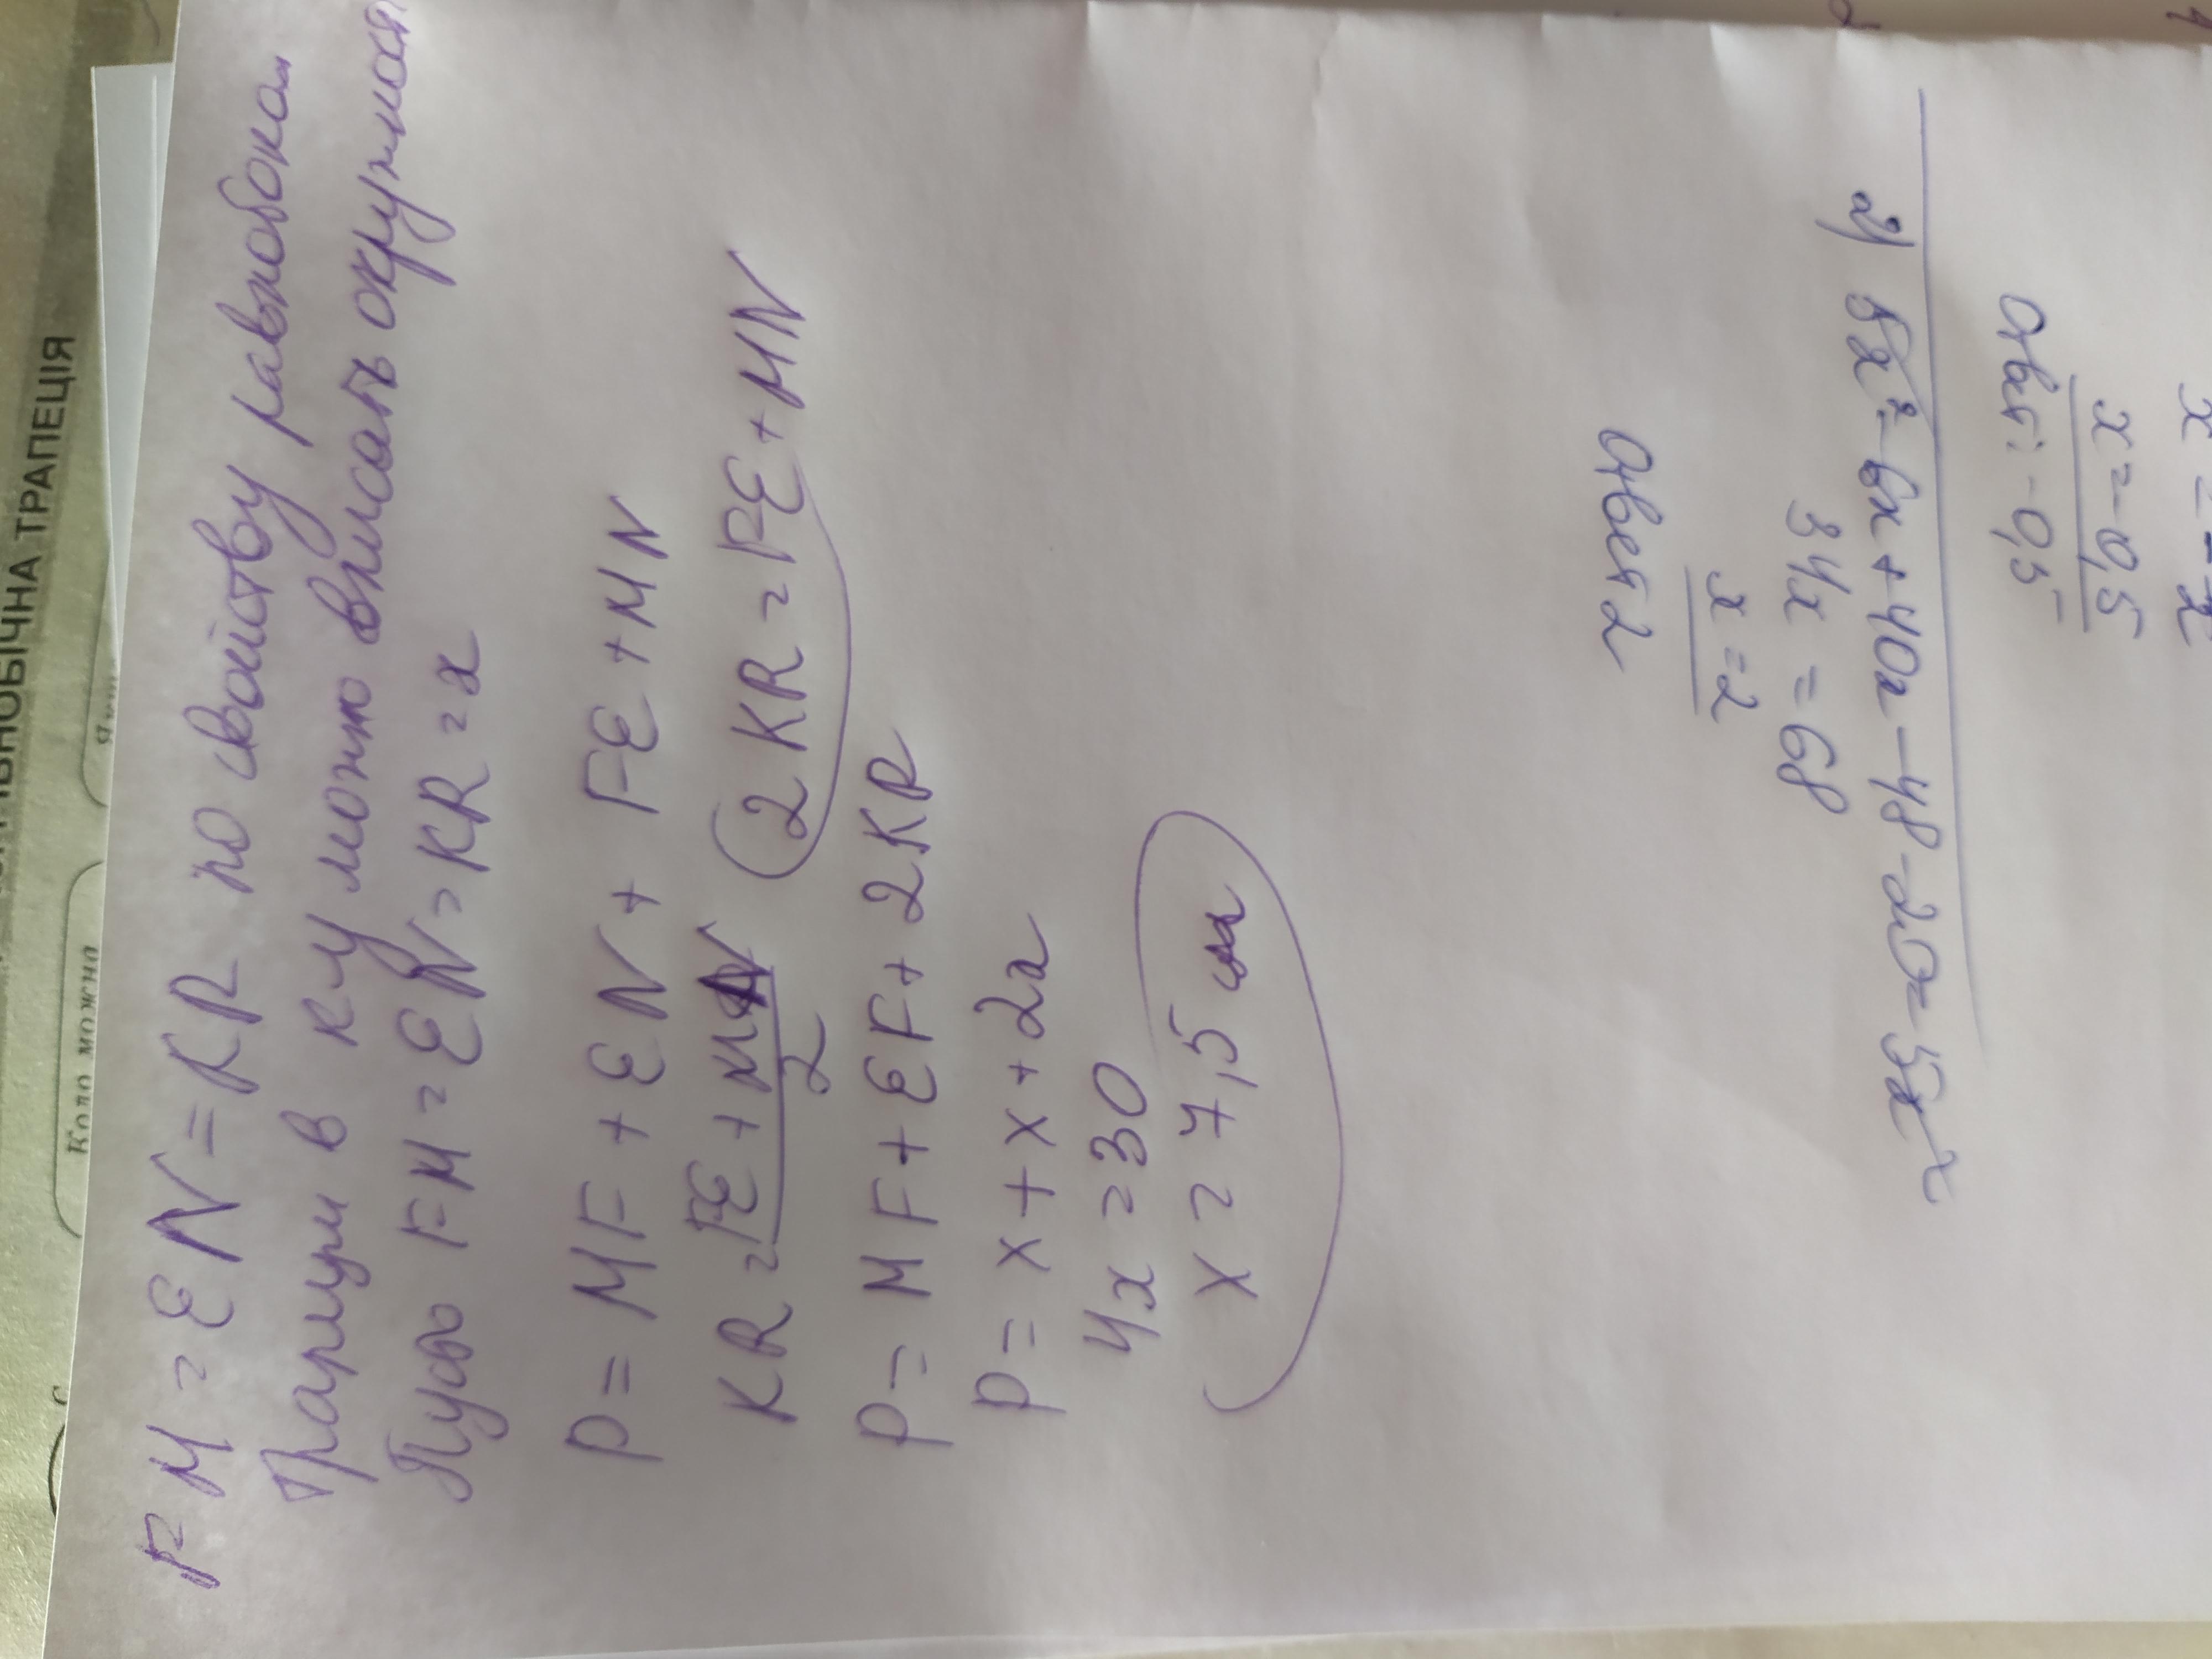 ВНОБІЧНА ТРАПЕЦІЯ
Коло можна
FM = EN = KR по свойству равнобокой
трапеции в к-у можно вписать окружность
Пусть FM = EN = KR = x
P = MF + EN + FE + MN
KR = FE + MN / 2 2KR = FE + MN
P = MF + EF + 2KR
P = x + x + 2x
4x = 30
x = 7,5 см
x = -0,5
Ответ: -0,5
2) 5x² - 6x + 40x - 48 - 20 = 5x²
34x = 68
x = 2
Ответ 2